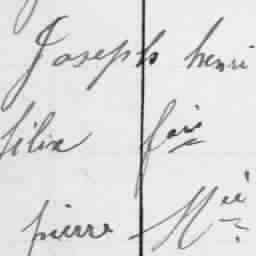 Joseph henri
félix fois
pierre Mée